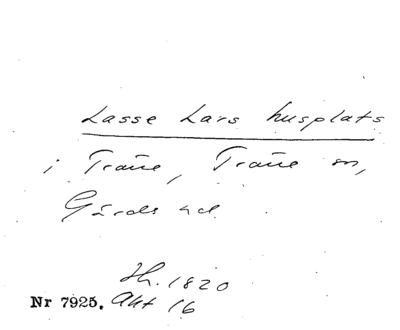 Lasse Lars husplats
i Trāne, Trāne sn,
Gärds hd.
Jh. 1820
Nr 7925. Akt 16